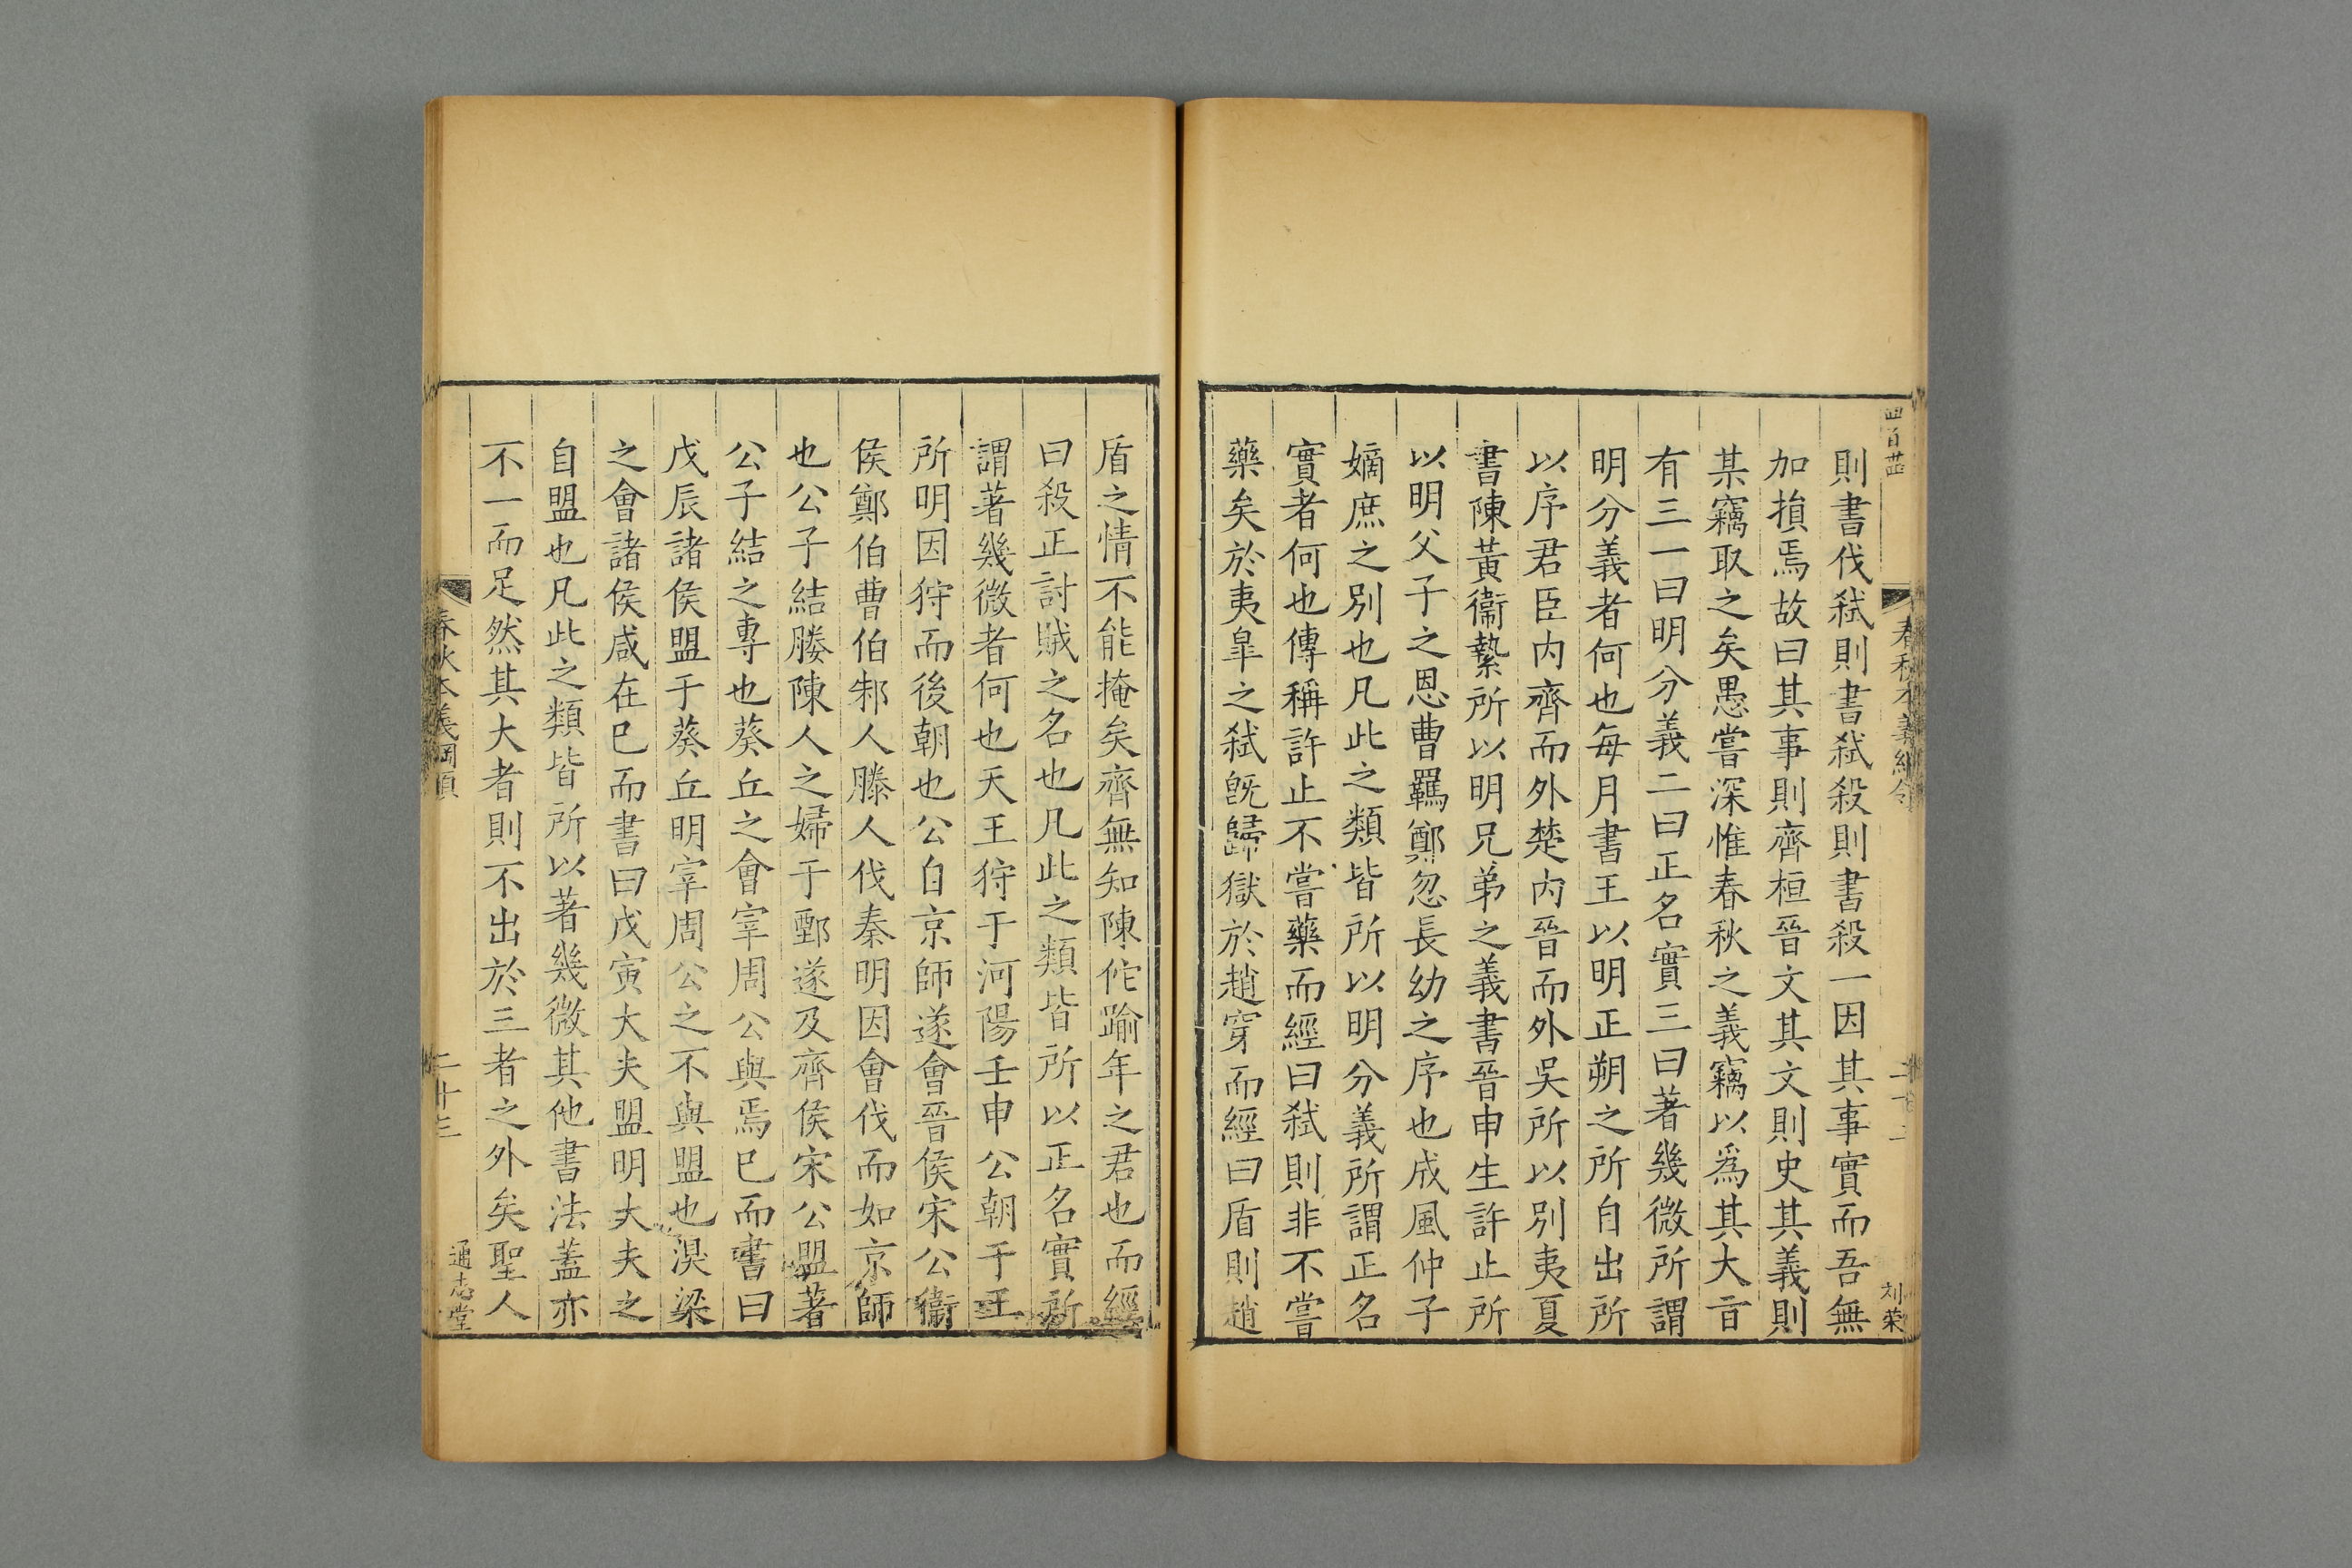 則書伐弑則書弑殺則書殺一因其事實而吾無
加損焉故曰其事則齊桓晉文其文則史其義則
某竊取之矣愚嘗深惟春秋之義竊以爲其大㫖
有三一曰明分義二曰正名實三曰著幾微所謂
明分義者何也每月書王以明正朔之所自出所
以序君臣内齊而外楚内晉而外吳所以別夷夏
書陳黃衞縶所以明兄弟之義書晉申生許止所
以明父子之恩曹羈鄭忽長幼之序也成風仲子
嫡庶之別也凡此之類皆所以明分義所謂正名
實者何也傳稱許止不嘗藥而經曰弑則非不嘗
藥矣於夷臯之弑旣歸獄於趙穿而經曰盾則趙
盾之情不能掩矣齊無知陳佗踰年之君也而經
曰殺正討賊之名也凡此之類皆所以正名實所
謂著幾微者何也天王狩于河陽壬申公朝于王
所明因狩而後朝也公自京師遂會晉侯宋公衞
侯鄭伯曹伯邾人滕人伐秦明因會伐而如京師
也公子結媵陳人之婦于鄄遂及齊侯宋公盟著
公子結之專也葵丘之會宰周公與焉已而書曰
戊辰諸侯盟于葵丘明宰周公之不與盟也湨梁
之會諸侯咸在已而書曰戊寅大夫盟明大夫之
自盟也凡此之類皆所以著幾微其他書法蓋亦
不一而足然其大者則不出於三者之外矣聖人
春秋本義綱領
二十三
通志堂